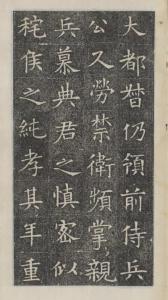 大都督仍領前侍兵
公又勞禁衛頻掌親
兵慕典君之慎密似
秺侯之純孝其年重